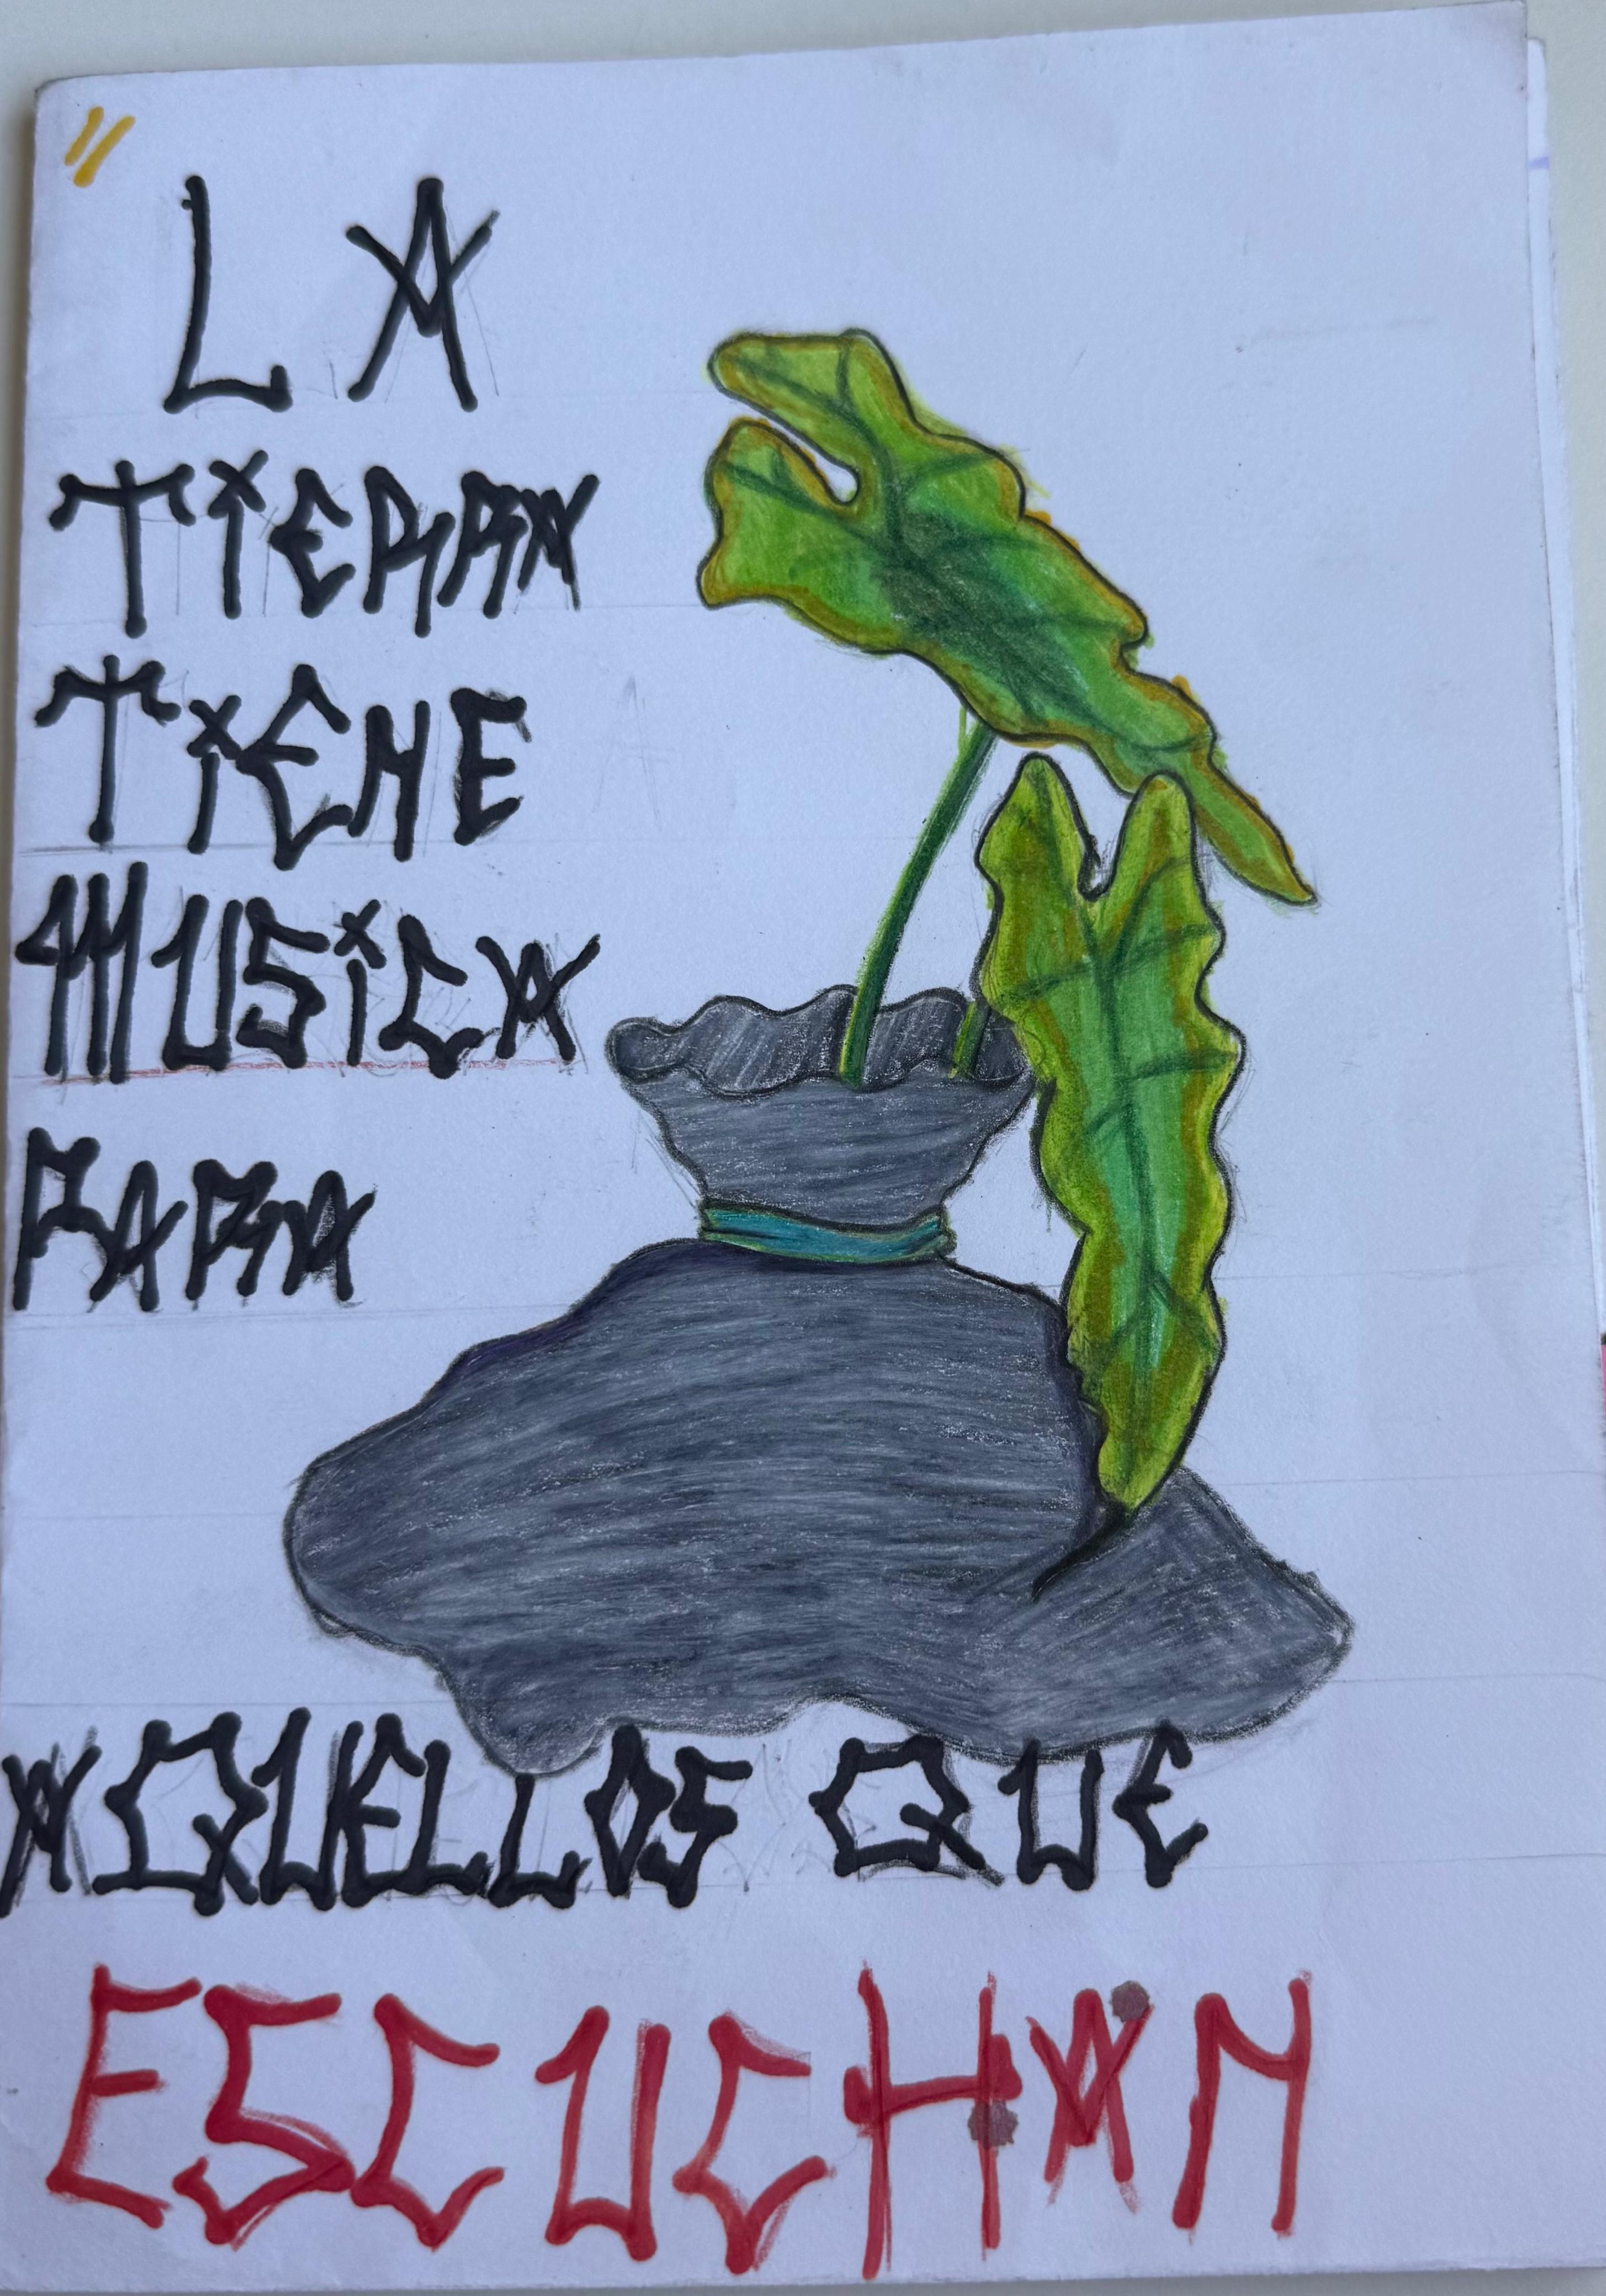 "
LA
TiERRA
TiENE
MUSiCA
PARA
AQUELLOS QUE
ESCUCHAN